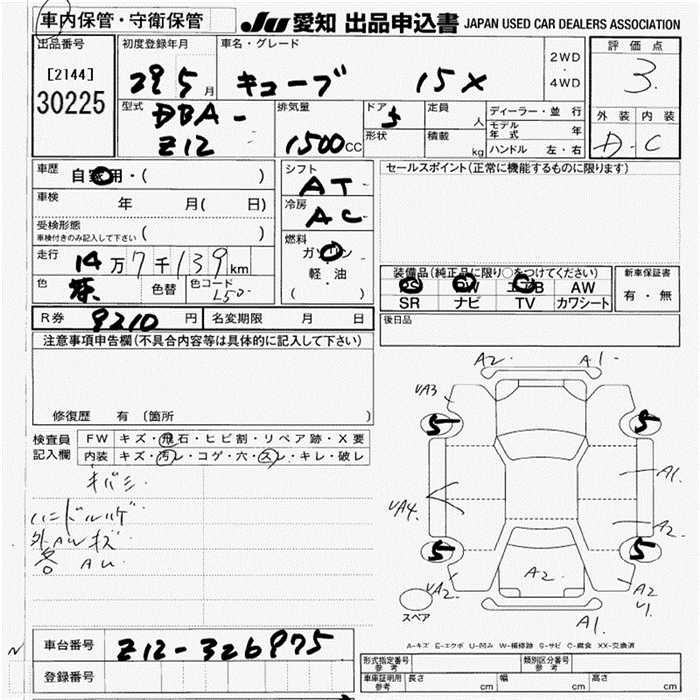 車内保管・守衛保管
JU 愛知 出品申込書 JAPAN USED CAR DEALERS ASSOCIATION
出品番号
[2144]
30225
初度登録年月
29 5 月
車名・グレード
キューブ 15X
2WD
・
4WD
評価点
3.
外装 内装
D - C
型式
DBA-
Z12
排気量
1500cc
ドア
5
形状
定員
人
積載
kg
ディーラー・並行
モデル年式 年
ハンドル 左・右
車歴
自家用・( )
車検
年 月( 日)
受検形態
車検付きのみ記入して下さい ( )
走行
14万7千139km
色
茶
色替
色コード
L50
シフト
AT
冷房
AC
燃料
ガソリン
軽・油
( )
セールスポイント(正常に機能するものに限ります)
装備品(純正品に限り○をつけてください)
PS PW エアB AW
SR ナビ TV カワシート
新車保証書
有・無
R券 9210 円
名変期限 月 日
後日品
注意事項申告欄(不具合内容等は具体的に記入して下さい)
修復歴 有 〔箇所 〕
検査員
記入欄
FW キズ・飛石・ヒビ割・リペア跡・X要
内装 キズ・汚レ・コゲ・穴・スレ・キレ・破レ
キバミ
ハンドルハゲ
外AWキズ
各 AU
A2. A1.
UA3
5 5
A1.
UA4.
A2
5 5
UA2 A2. A2
U1.
A1.
スペア
A-キズ E-エクボ U-凹み W-補修跡 S-サビ C-腐食 XX-交換済
車台番号 Z12-326975
登録番号
形式指定番号
参考
類別区分番号
参考
車庫証明用
参考
長さ cm 幅 cm 高さ cm